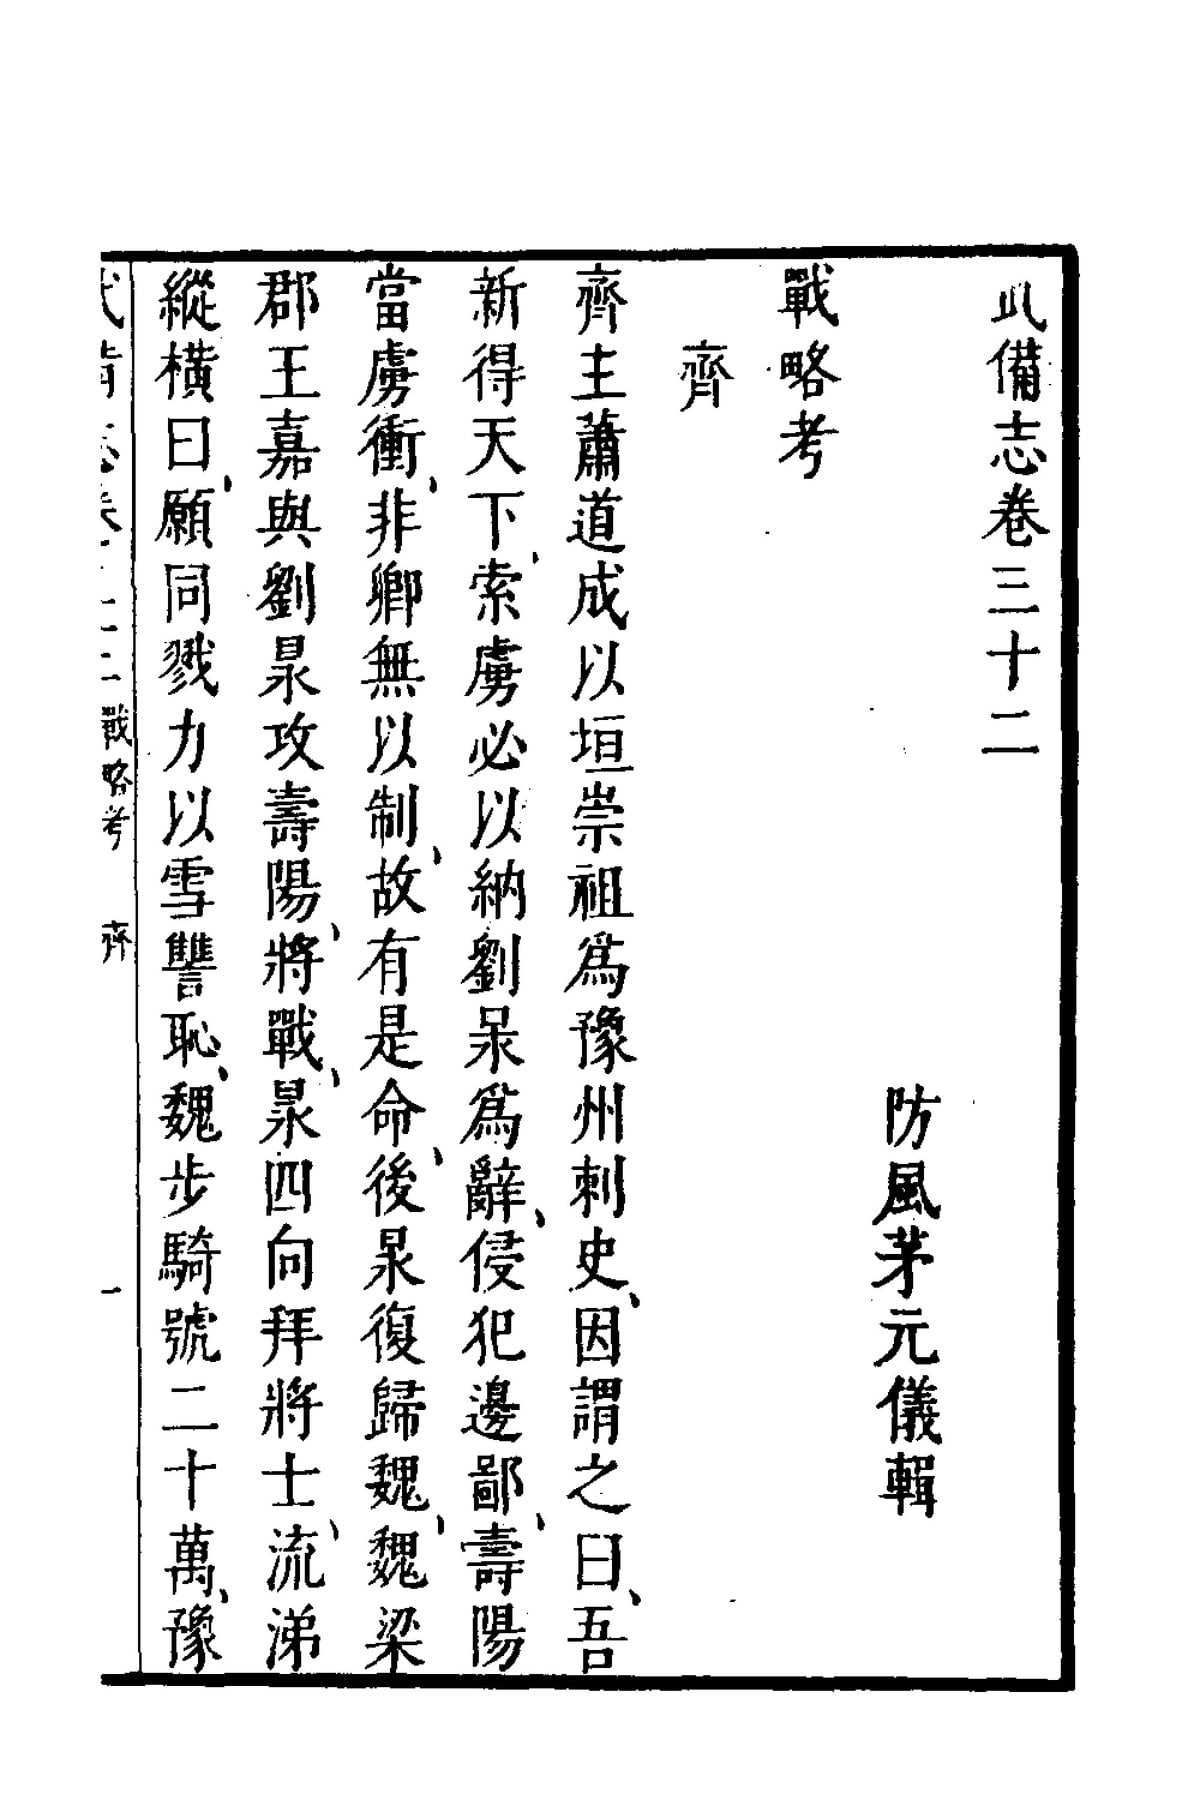 武備志卷三十二
防風茅元儀輯
戰略考
齊
齊主蕭道成以垣崇祖爲豫州刺史、因謂之曰、吾
新得天下、索虜必以納劉昶爲辭、侵犯邊鄙、壽陽
當虜衝、非卿無以制、故有是命、後昶復歸魏、魏梁
郡王嘉與劉昶攻壽陽、將戰、昶四向拜將士、流涕
縱橫曰、願同戮力以雪讐恥、魏步騎號二十萬、豫
武備志卷三十二 戰略考 齊 一